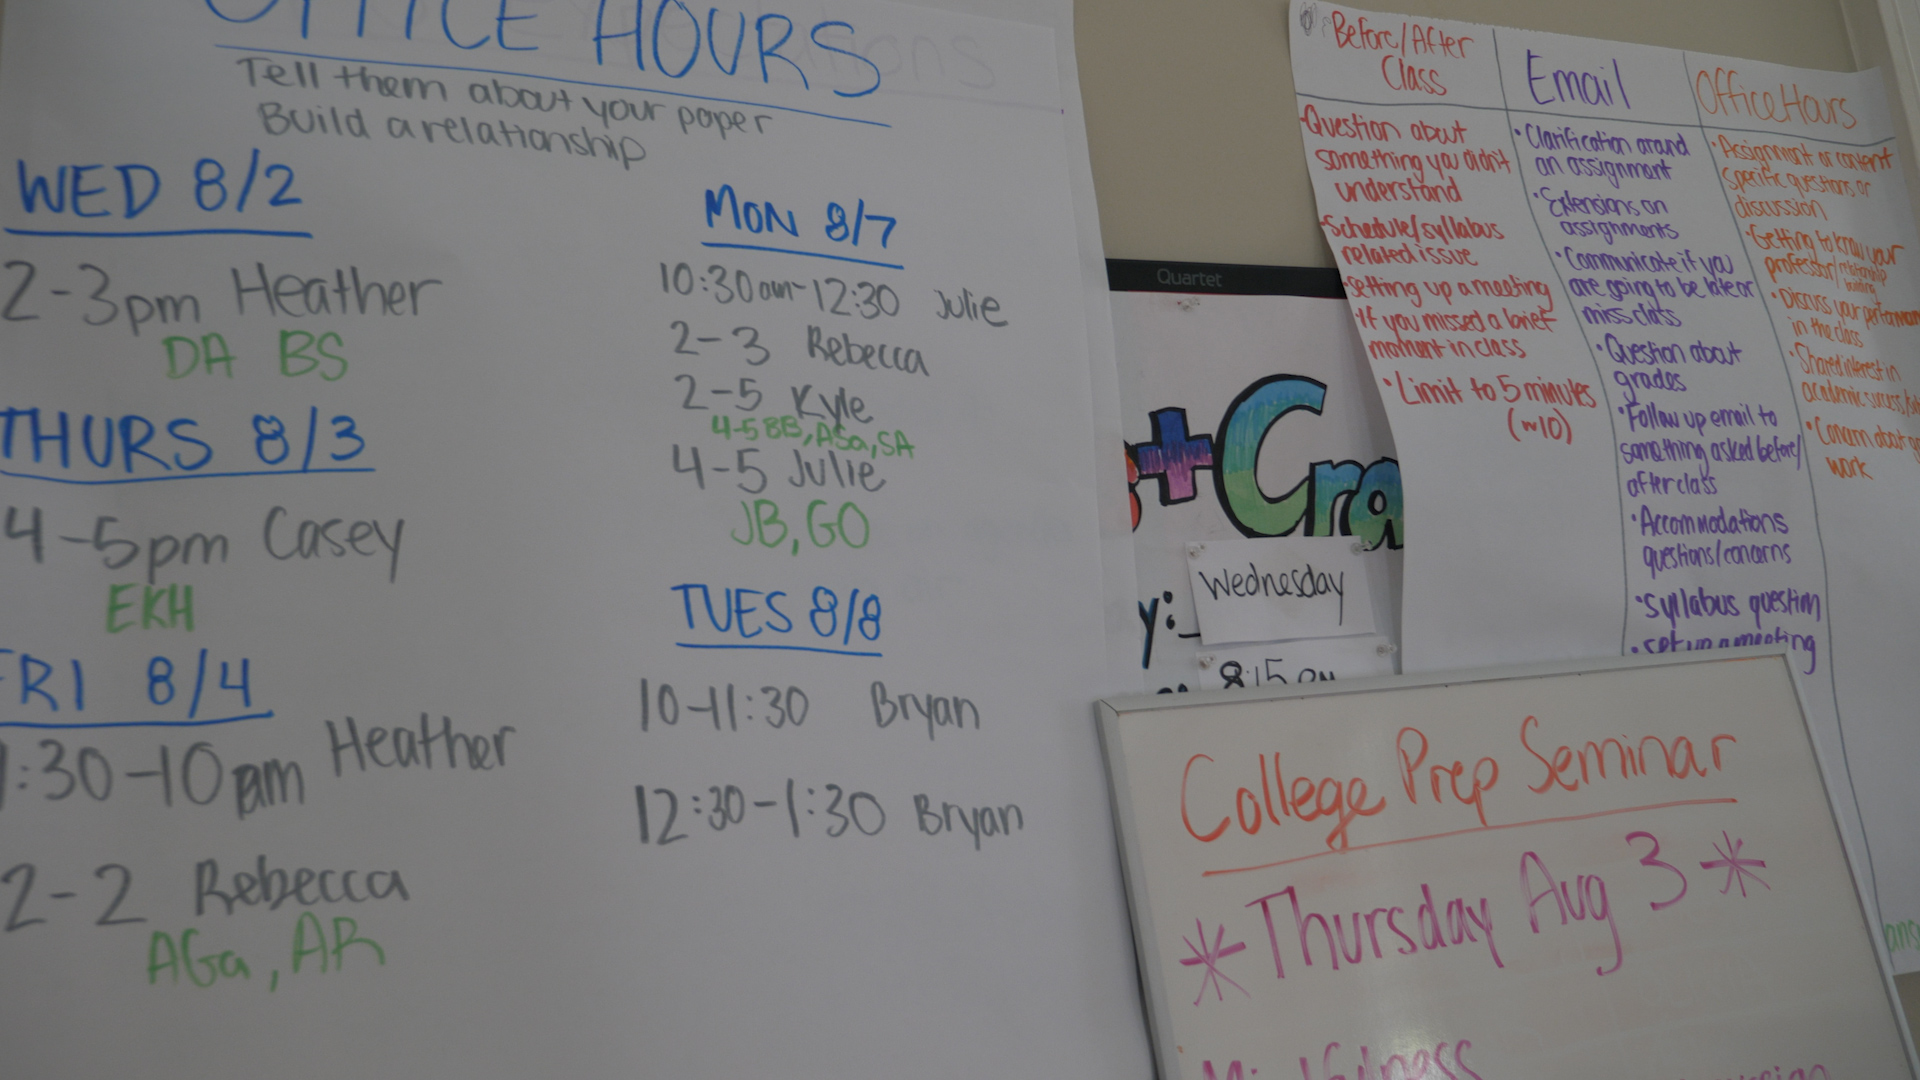 OFFICE HOURS
Tell them about your paper
Build a relationship
WED 8/2
2-3pm Heather
DA BS
THURS 8/3
4-5pm Casey
EKH
FRI 8/4
:30-10am Heather
2-2 Rebecca
AGa, AR
MON 8/7
10:30am-12:30 Julie
2-3 Rebecca
2-5 Kyle
4-5 BB, ASa, SA
4-5 Julie
JB, GO
TUES 8/8
10-11:30 Bryan
12:30-1:30 Bryan
Quartet
+Cra
y:
Wednesday
8:15 pm
Before/After
Class
Question about
something you didn't
understand
Schedule/syllabus
related issue
Setting up a meeting
If you missed a brief
moment in class
Limit to 5 minutes
(~10)
Email
Clarification around
an assignment
Extensions on
assignments
Communicate if you
are going to be late or
miss class
Question about
grades
Follow up email to
something asked before/
after class
Accommodations
questions/concerns
Syllabus question
set up a meeting
Office Hours
Assignment or content
specific questions or
discussion
Getting to know your
professor/relationship
building
Discuss your performan
in the class
Shared interest in
academic success/
Concern about
work
College Prep Seminar
*Thursday Aug 3*
Mindfulness